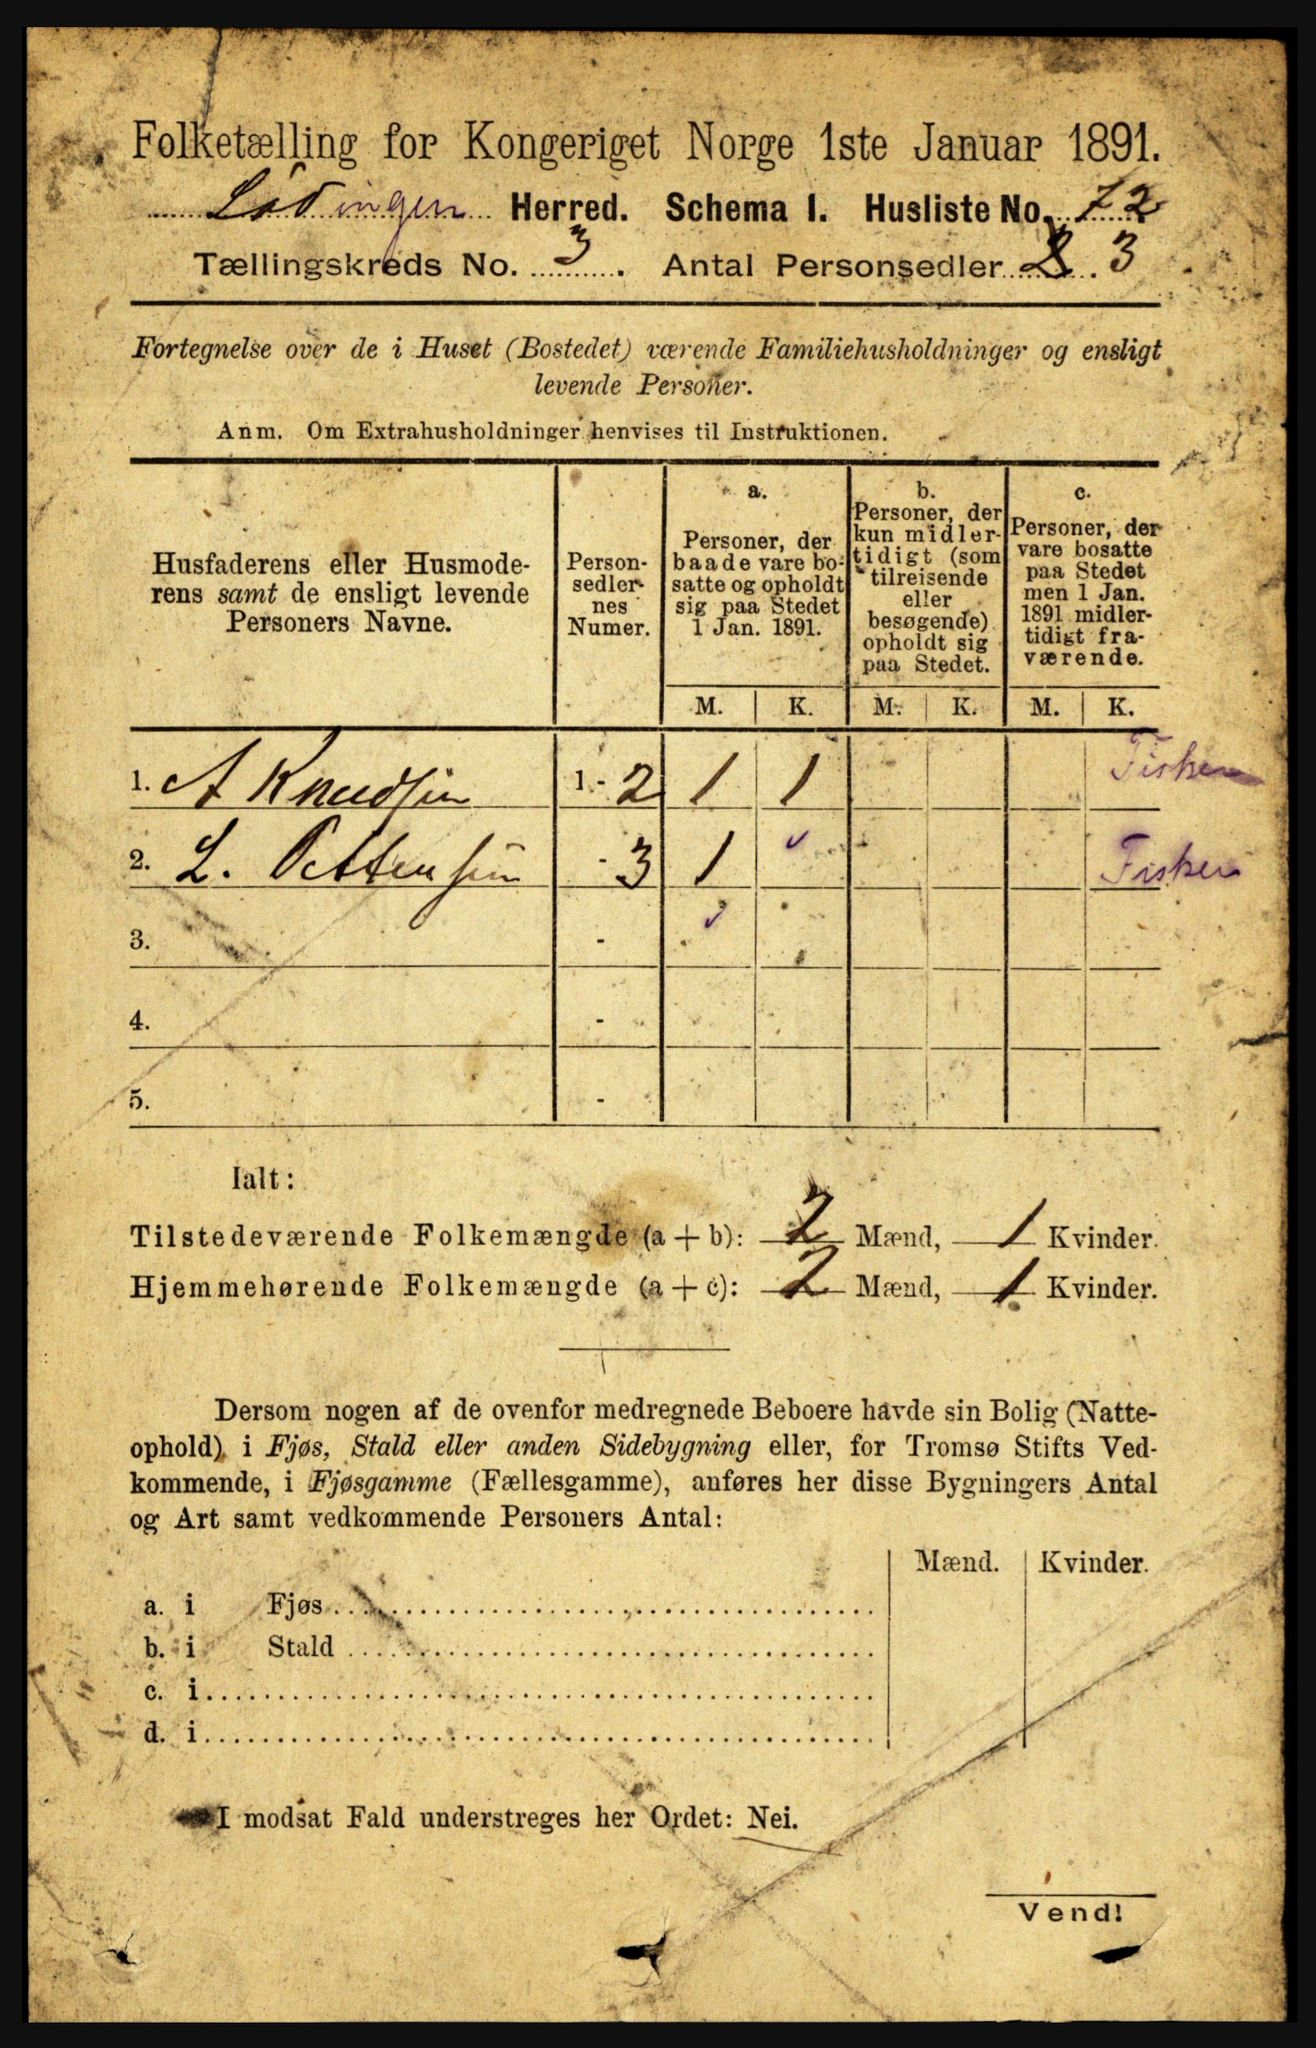 Folketælling for Kongeriget Norge 1ste Januar 1891.
Lödingen Herred. Schema I. Husliste No. 72
Tællingskreds No. 3. Antal Personsedler 2. 3
Fortegnelse over de i Huset (Bostedet) værende Familiehusholdninger og ensligt
levende Personer.
Anm. Om Extrahusholdninger henvises til Instruktionen.
Husfaderens eller Husmode-
rens samt de ensligt levende
Personers Navne.
Person-
sedler-
nes
Numer.
a.
Personer, der
baade vare bo-
satte og opholdt
sig paa Stedet
1 Jan. 1891.
b.
Personer, der
kun midler-
tidigt (som
tilreisende
eller
besøgende)
opholdt sig
paa Stedet.
c.
Personer, der
vare bosatte
paa Stedet
men 1 Jan.
1891 midler-
tidigt fra-
værende.
M. K. M. K. M. K.
1. A Knudsen 1 - 2 1 1 Fisker
2. L. Pettersen - 3 1 Fisker
3. -
4. -
5. -
Ialt:
Tilstedeværende Folkemængde (a + b): 2 Mænd, 1 Kvinder.
Hjemmehørende Folkemængde (a + c): 2 Mænd, 1 Kvinder.
Dersom nogen af de ovenfor medregnede Beboere havde sin Bolig (Natte-
ophold) i Fjøs, Stald eller anden Sidebygning eller, for Tromsø Stifts Ved-
kommende, i Fjøsgamme (Fællesgamme), anføres her disse Bygningers Antal
og Art samt vedkommende Personers Antal:
Mænd. Kvinder.
a. i Fjøs
b. i Stald
c. i
d. i
I modsat Fald understreges her Ordet: Nei.
Vend!